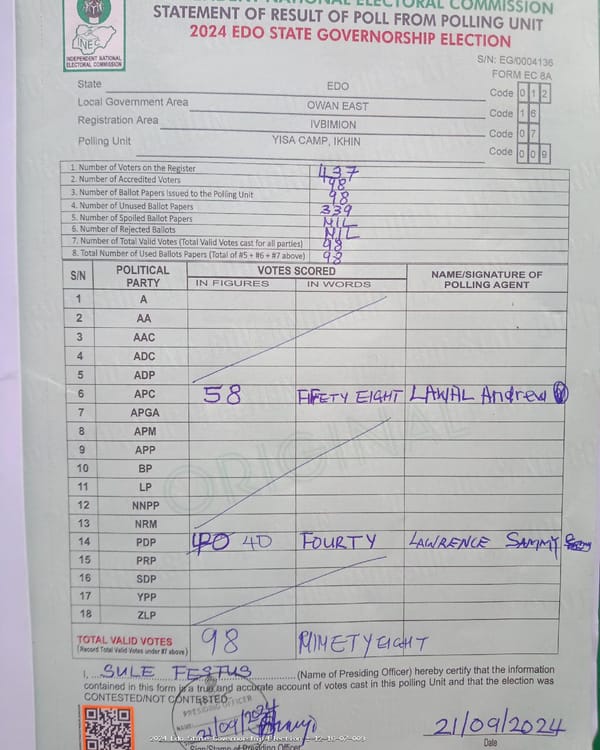 INDEPENDENT NATIONAL ELECTORAL COMMISSION
STATEMENT OF RESULT OF POLL FROM POLLING UNIT
2024 EDO STATE GOVERNORSHIP ELECTION
INEC
INDEPENDENT NATIONAL
ELECTORAL COMMISSION
S/N: EG/0004136
FORM EC 8A
State EDO Code 0 1 2
Local Government Area OWAN EAST Code 1 6
Registration Area IVBIMION Code 0 7
Polling Unit YISA CAMP, IKHIN Code 0 0 9
1. Number of Voters on the Register 437
2. Number of Accredited Voters 98
3. Number of Ballot Papers Issued to the Polling Unit 98
4. Number of Unused Ballot Papers 339
5. Number of Spoiled Ballot Papers NIL
6. Number of Rejected Ballots NIL
7. Number of Total Valid Votes (Total Valid Votes cast for all parties) 98
8. Total Number of Used Ballots Papers (Total of #5 + #6 + #7 above) 98
S/N POLITICAL PARTY VOTES SCORED NAME/SIGNATURE OF POLLING AGENT
IN FIGURES IN WORDS
1 A
2 AA
3 AAC
4 ADC
5 ADP
6 APC 58 FIFETY EIGHT LAWAL Andrew
7 APGA
8 APM
9 APP
10 BP
11 LP
12 NNPP
13 NRM
14 PDP 40 40 FOURTY LAWRENCE SAMMY
15 PRP
16 SDP
17 YPP
18 ZLP
ORIGINAL
TOTAL VALID VOTES 98 NINETYEIGHT
(Record Total Valid Votes under #7 above)
I, SULE FESTUS (Name of Presiding Officer) hereby certify that the information
contained in this form is a true and accurate account of votes cast in this polling Unit and that the election was
CONTESTED/NOT CONTESTED
PRESIDING OFFICER
21/09/2024 21/09/2024
Sign/Stamp of Presiding Officer Date